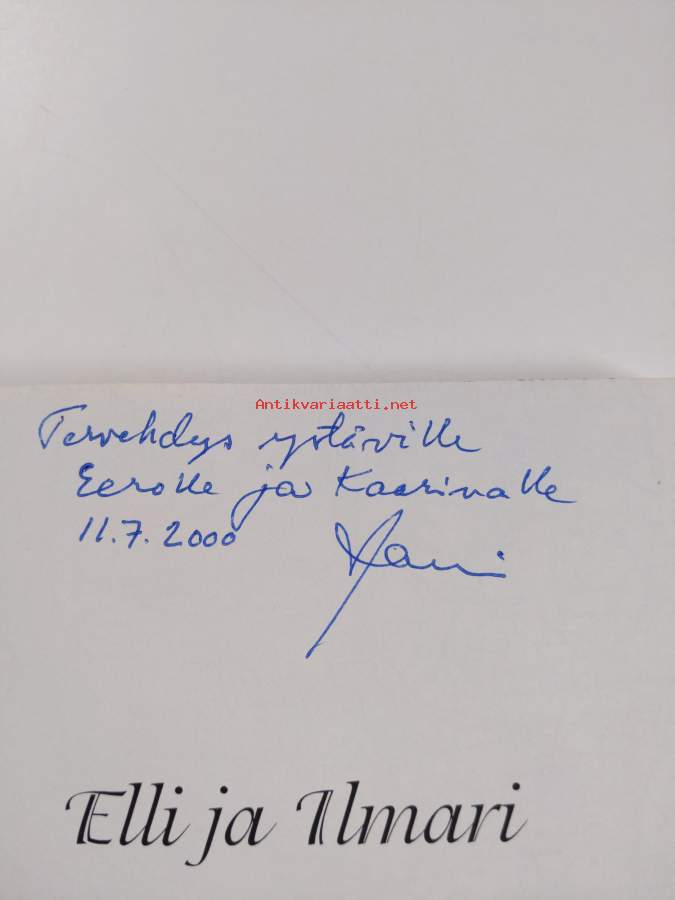 Antikvariaatti.net
Tervehdys ystäville
Eerolle ja Kaarinalle
11.7.2000
Elli ja Ilmari